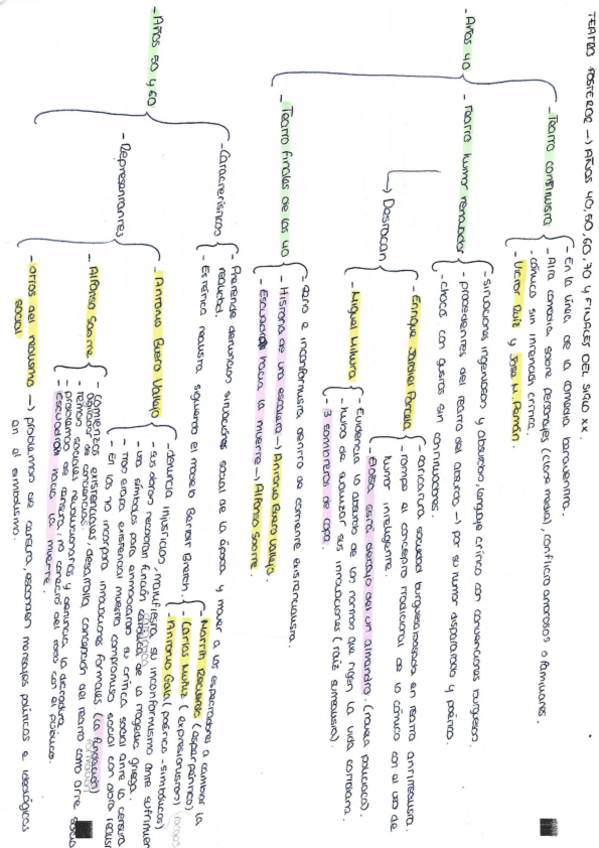 TEATRO POSTERIOR → AÑOS 40, 50, 60, 70 Y FINALES DEL SIGLO XX.
- Años 40
- Teatro continuista
- En la línea de la comedia benaventina.
- Alta comedia sobre personajes (clase media), conflicto amorosos o familiares.
- cómica sin intención crítica.
- Víctor Ruiz y José M. Pemán.
- Teatro humor renovador
- situaciones ingeniosas y absurdas, lenguaje crítico con convenciones burguesas.
- precedentes del teatro del absurdo → por su humor disparatado y poético.
- choca con gustos sin continuadores.
→ Destacan
- Enrique Jardiel Poncela
- caricatura sociedad burguesa basada en teatro antirrealista.
- rompe el concepto tradicional de lo cómico con el uso de
humor inteligente.
- Eloísa está debajo de un almendro. (novela policiaca).
- Miguel Mihura
- Evidencia lo absurdo de las normas que rigen la vida cotidiana.
- tuvo de suavizar sus innovaciones (raíz surrealista).
- 3 sombreros de copa.
- Teatro finales de los 40
- serio e inconformista dentro de corriente existencialista.
- Historia de una escalera → Antonio Buero Vallejo.
- Escuadra hacia la muerte → Alfonso Sastre.
- Años 50 y 60
- Características
- Pretende denunciar situaciones social de la época y mover a los espectadores a cambiar la
realidad.
- Estética realista, siguiendo el modelo Bertolt Brecht.
- Representantes
- Antonio Buero Vallejo
- denuncia injusticias, manifiesta su inconformismo ante
- sus obras recobran función catártica de la tragedia griega.
- usa símbolos para enmascarar su crítica social ante la censura
- En los 70 incorpora innovaciones formales (la fundación)
- Alfonso Sastre
- Comienzos existenciales, desarrolla concepción del teatro como arte social
- temas sociales revolucionarios y denuncia la dictadura.
- problemas de censura, no conectó del todo con el público.
- Escuadra hacia la muerte.
- otros del realismo
social
→ problemas de censura, esconden mensajes políticos e ideológicos
en el simbolismo.
- Martín Recuerda (esperpéntico)
- Carlos Muñiz (expresionismo)
- Antonio Gala (poético - simbólicas)